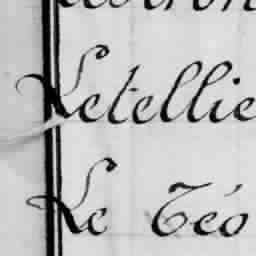 Letellie
Le Téo